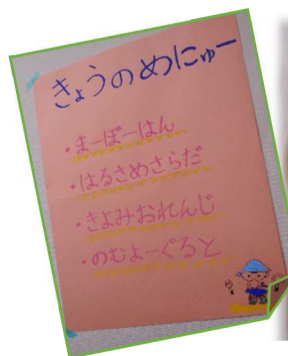 きょうのめにゅー
・まーぼーはん
・はるさめさらだ
・きよみおれんじ
・のむよーぐると